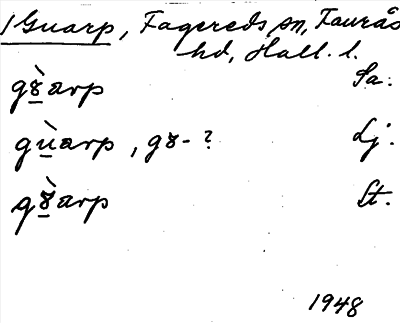 1 Guarp, Fagereds sn, Faurås
hd, Hall. l.
gȣ̠̀arp Sa.
gù̠arp, gȣ- ? Lj.
gȣ̠̀arp St.
1948